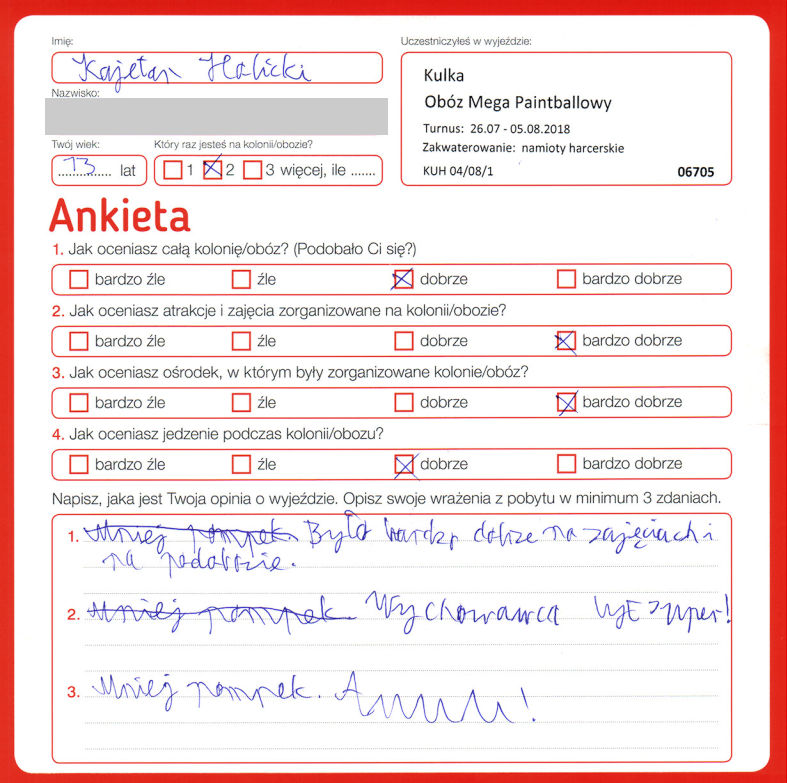 Imię:
Uczestniczyłeś w wyjeździe:
Kajetan Halicki
Kulka
Nazwisko:
Obóz Mega Paintballowy
Turnus: 26.07 - 05.08.2018
Twój wiek:
Który raz jesteś na kolonii/obozie?
Zakwaterowanie: namioty harcerskie
13 lat
1 2 3 więcej, ile .......
KUH 04/08/1
06705
Ankieta
1. Jak oceniasz całą kolonię/obóz? (Podobało Ci się?)
bardzo źle źle dobrze bardzo dobrze
2. Jak oceniasz atrakcje i zajęcia zorganizowane na kolonii/obozie?
bardzo źle źle dobrze bardzo dobrze
3. Jak oceniasz ośrodek, w którym były zorganizowane kolonie/obóz?
bardzo źle źle dobrze bardzo dobrze
4. Jak oceniasz jedzenie podczas kolonii/obozu?
bardzo źle źle dobrze bardzo dobrze
Napisz, jaka jest Twoja opinia o wyjeździe. Opisz swoje wrażenia z pobytu w minimum 3 zdaniach.
1. Mniej pompek Było bardzo dobrze na zajęciach i
na podobozie.
2. Mniej pompek Wychowawca był super!
3. Mniej pompek.